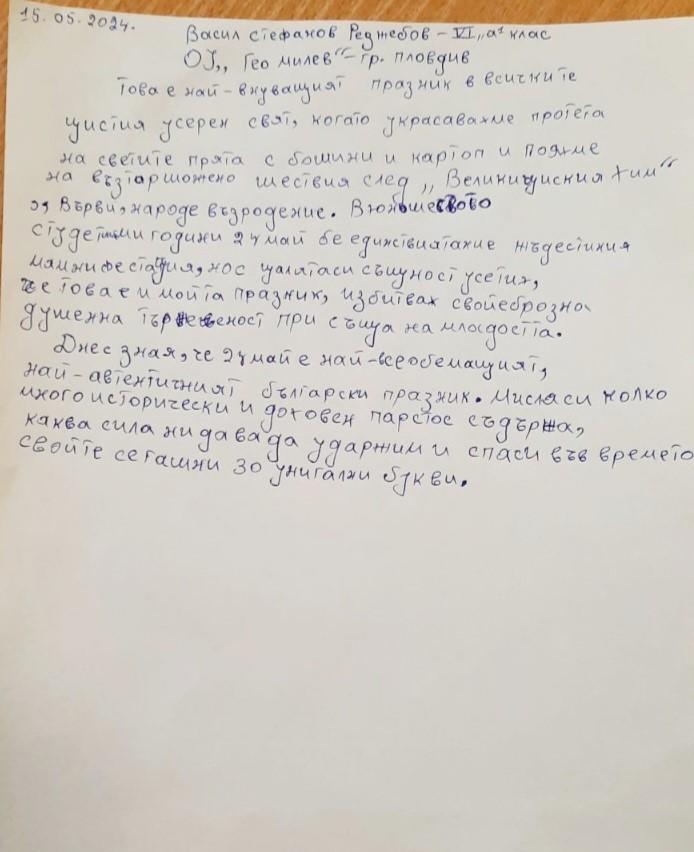 15.05.2024.
Васил Стефанов Реджебов - VI „а" клас
ОУ „Гео Милев" - гр. Пловдив
Това е най-внуващият празник в всичките
чистия усерен свят, когато украсавахме протета
на светите прята с бошини и картоп и пояхме
на възтаржожено шествия след „Величисния хим"
Върви, народе възродение. В юношеството
студетми години 24 май бе единствиятание
манифестация, нос цялатаси същност усетих,
че това е и мойта празник, избитвах свойеброзно
душенна търженост при съща на младостта.
Днес зная, че 24 май е най-всеобемащият,
най-автентичният български празник. Мисля си колко
много исторически и доховен парстос съдържа,
каква сила ни дава да ударжим и спаси във времето
свойте сегашни 30 унигални букви.